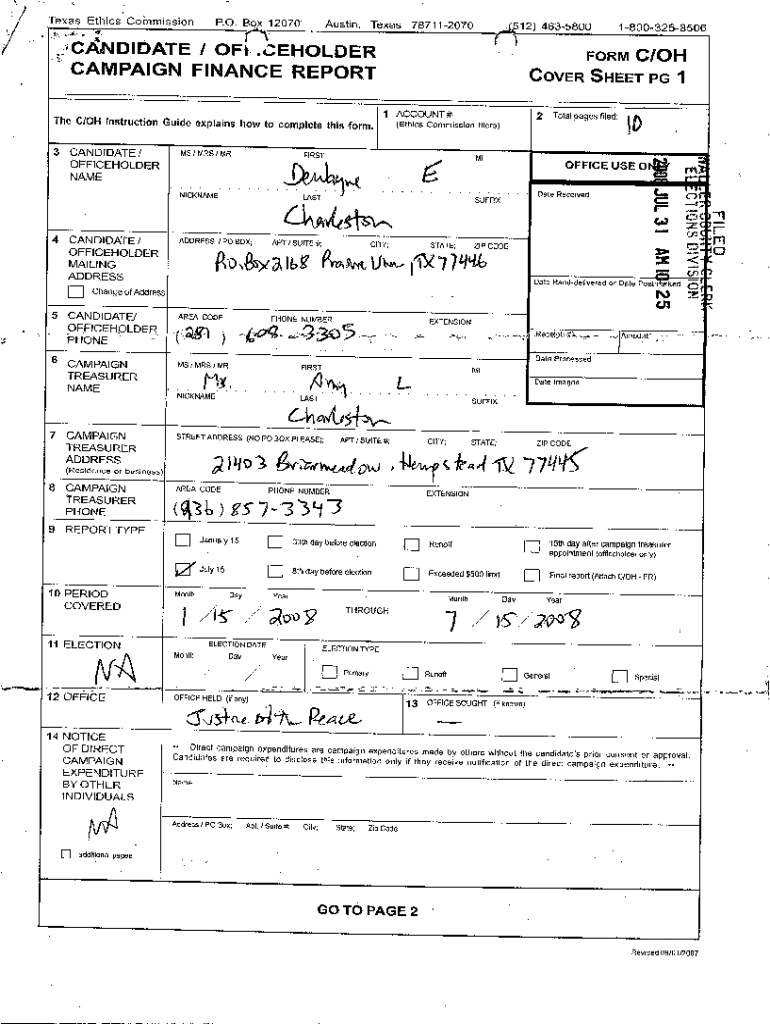 Texas Ethics Commission P.O. Box 12070 Austin, Texas 78711-2070 (512) 463-5800 1-800-325-8506
CANDIDATE / OFFICEHOLDER
CAMPAIGN FINANCE REPORT
FORM C/OH
COVER SHEET PG 1
The C/OH Instruction Guide explains how to complete this form.
1 ACCOUNT #
(Ethics Commission filers)
2 Total pages filed:
10
3 CANDIDATE /
OFFICEHOLDER
NAME
MS / MRS / MR FIRST MI
Dewayne E
NICKNAME LAST SUFFIX
Charleston
OFFICE USE ONLY
Date Received
FILED
WALLER COUNTY CLERK
ELECTIONS DIVISION
2008 JUL 31 AM 10 25
4 CANDIDATE /
OFFICEHOLDER
MAILING
ADDRESS
Change of Address
ADDRESS / PO BOX; APT / SUITE #; CITY; STATE; ZIP CODE
P.O. Box 2168 Prairie View, TX 77446
Date Hand-delivered or Date Postmarked
5 CANDIDATE/
OFFICEHOLDER
PHONE
AREA CODE PHONE NUMBER EXTENSION
(281) 608-3305
Receipt # Amount
Date Processed
Date Imaged
6 CAMPAIGN
TREASURER
NAME
MS / MRS / MR FIRST MI
Amy L
NICKNAME LAST SUFFIX
Charleston
7 CAMPAIGN
TREASURER
ADDRESS
(Residence or business)
STREET ADDRESS (NO PO BOX PLEASE); APT / SUITE #; CITY; STATE; ZIP CODE
21403 Briarmeadow, Hempstead TX 77445
8 CAMPAIGN
TREASURER
PHONE
AREA CODE PHONE NUMBER EXTENSION
(936) 857-3343
9 REPORT TYPE
January 15 30th day before election Runoff 15th day after campaign treasurer
appointment (officeholder only)
July 15 8th day before election Exceeded $500 limit Final report (Attach C/OH - FR)
10 PERIOD
COVERED
Month Day Year Month Day Year
1 / 15 / 2008 THROUGH 7 / 15 / 2008
11 ELECTION
NA
ELECTION DATE
Month Day Year
/ /
ELECTION TYPE
Primary Runoff General Special
12 OFFICE
OFFICE HELD (if any)
Justice of the Peace
13 OFFICE SOUGHT (if known)
—
14 NOTICE
OF DIRECT
CAMPAIGN
EXPENDITURE
BY OTHER
INDIVIDUALS
NA
additional pages
** Direct campaign expenditures are campaign expenditures made by others without the candidate's prior consent or approval.
Candidates are required to disclose this information only if they receive notification of the direct campaign expenditure. **
Name
Address / PO Box; Apt. / Suite #; City; State; Zip Code
GO TO PAGE 2